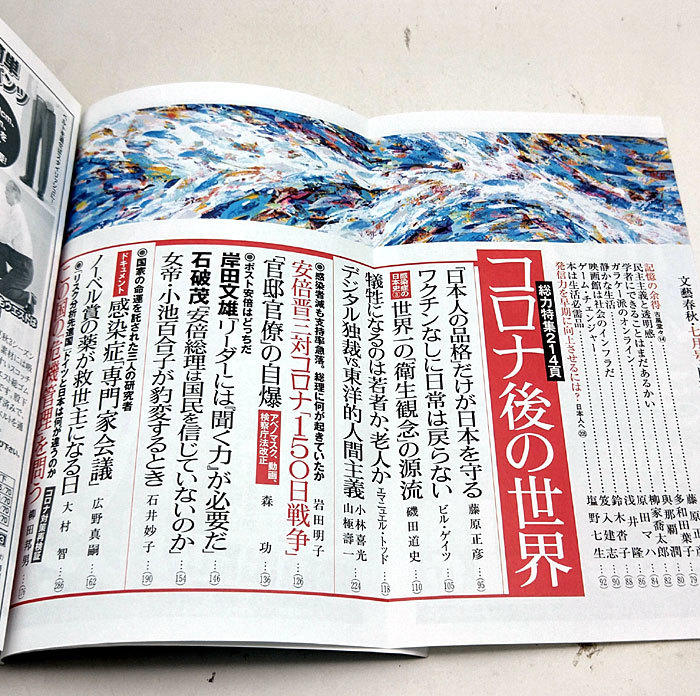 文藝春秋
記憶の余得
民主主義と透明感
学者にできることはまだあるかい
ガラケー派のオンライン
静かな生活
ゲーム・チェンジャー
映画館は社会のインフラだ
本は生活必需品
発信力を早期に向上させるには? 日本人へ
藤原正彦 79
多和田葉子 80
與那覇潤 82
柳家喬太郎 84
原田マハ 86
浅井隆 88
鈴木杏子 90
笈入建志
塩野七生 92
総力特集214頁
コロナ後の世界
日本人の品格だけが日本を守る 藤原正彦 95
ワクチンなしに日常は戻らない ビル・ゲイツ 105
感染症の日本史③
世界一の「衛生観念」の源流 磯田道史 110
犠牲になるのは若者か、老人か エマニュエル・トッド 118
デジタル独裁 vs. 東洋的人間主義 小林喜光 山極壽一 224
●感染者減も支持率急落。総理に何が起きていたか
安倍晋三対コロナ「150日戦争」 岩田明子 126
「官邸官僚」の自爆 アベノマスク、動画、検察庁法改正 森功 136
●ポスト安倍はどっちだ
岸田文雄「リーダーには『聞く力』が必要だ」 146
石破茂「安倍総理は国民を信じていないのか」 154
女帝・小池百合子が豹変するとき 石井妙子 190
●国家の命運を託された三人の研究者
ドキュメント 感染症「専門家会議」 広野真嗣 162
ノーベル賞の薬が救世主になる日 大村智 286
●リスク分析先進国「ドイツと日本は何が違うのか」
この国の「危機管理」を問う コロナ対策再検証 柳田邦男 176